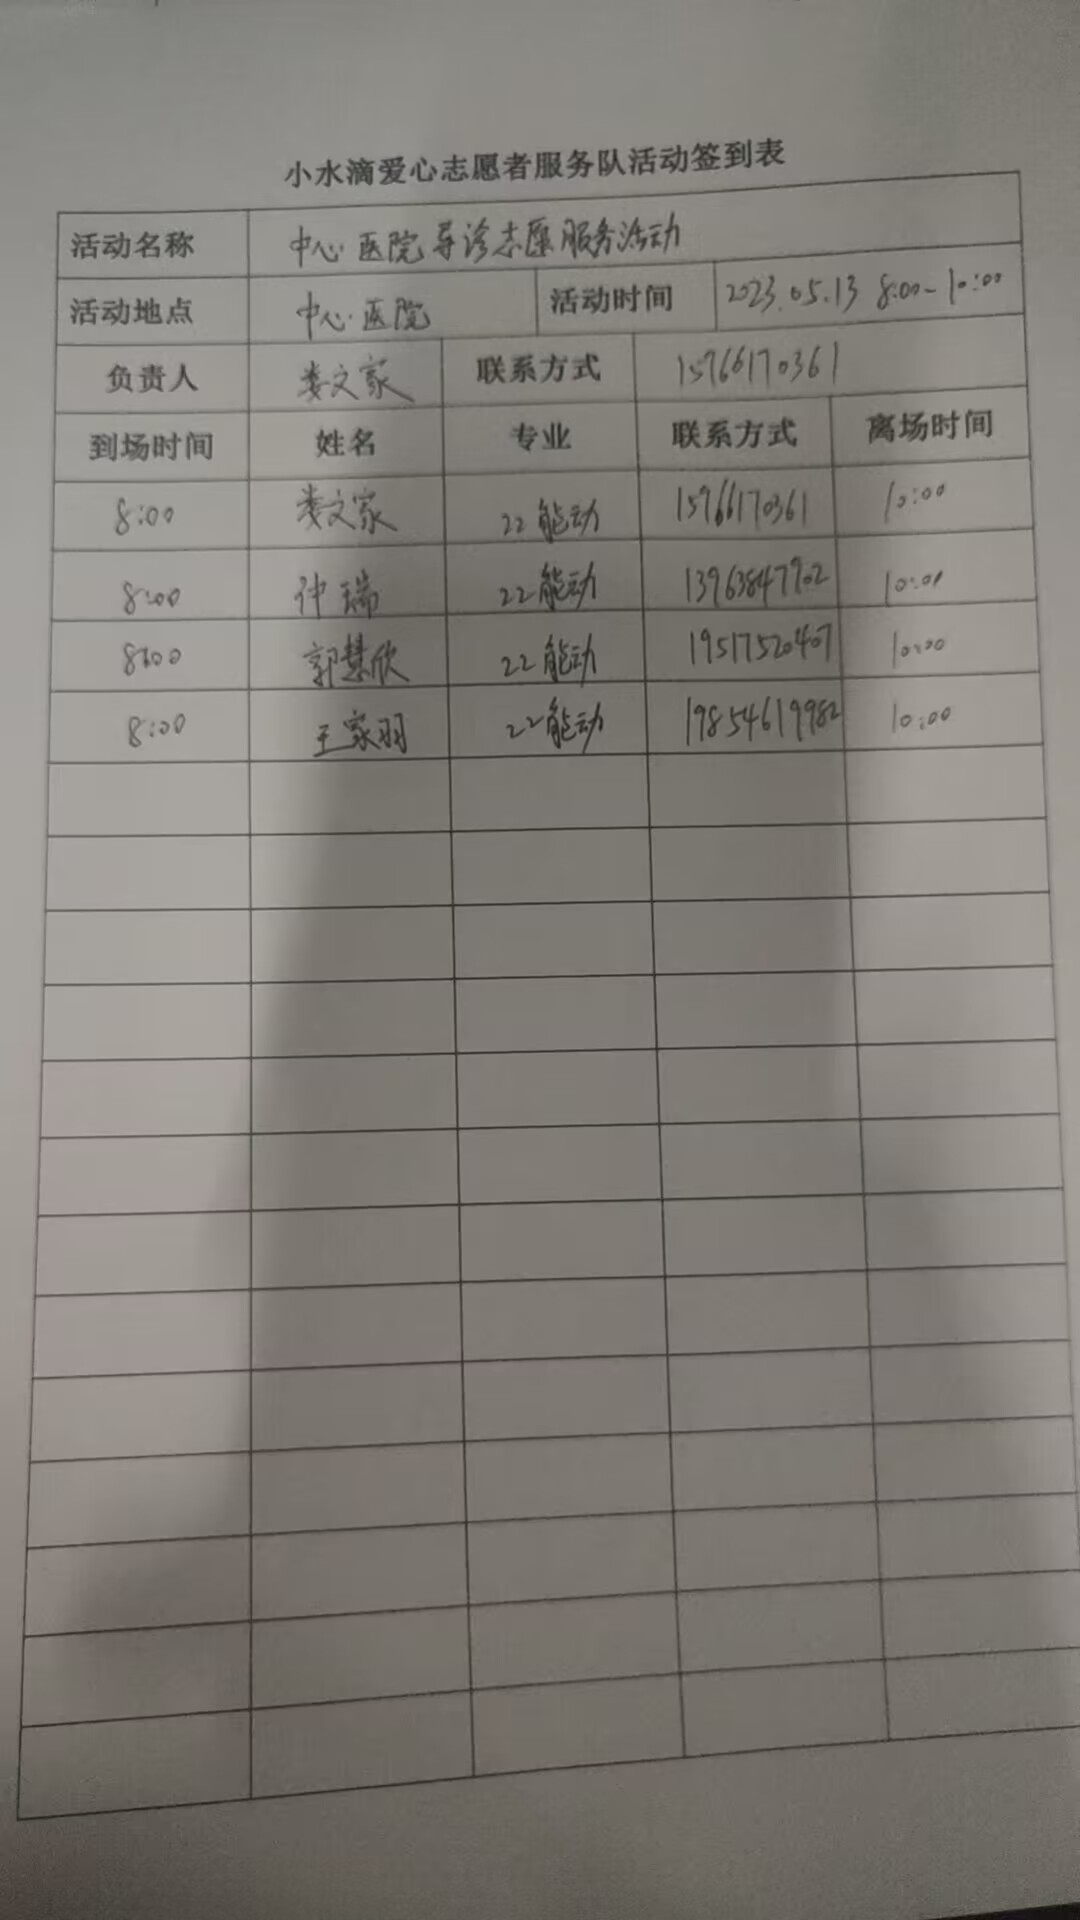 小水滴爱心志愿者服务队活动签到表
活动名称 中心医院导诊志愿服务活动
活动地点 中心医院 活动时间 2023.05.13 8:00-10:00
负责人 娄文家 联系方式 15966170361
到场时间 姓名 专业 联系方式 离场时间
8:00 娄文家 22能动 15966170361 10:00
8:00 仲瑞 22能动 13963847902 10:00
8:00 郭慧欣 22能动 19517520407 10:00
8:00 王家羽 22能动 19854619982 10:00